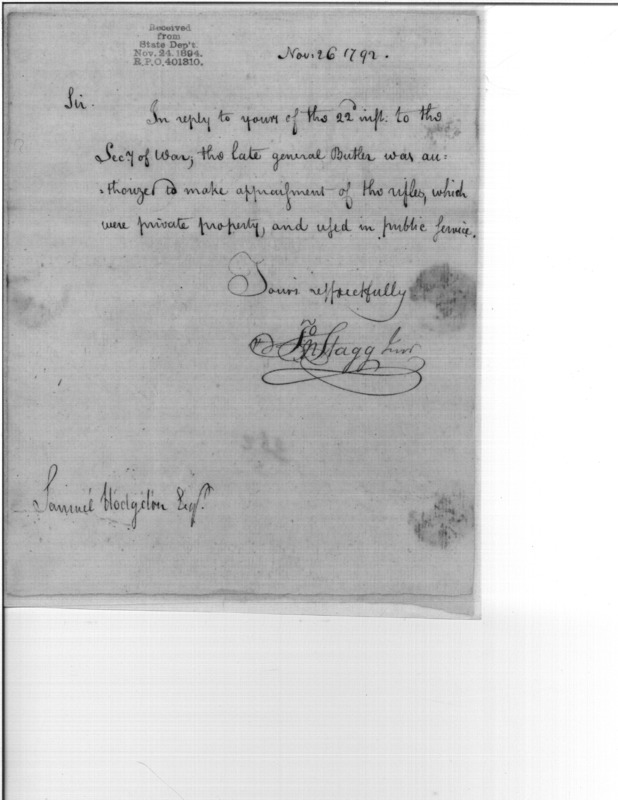 Received
from
State Dep't.
Nov. 24. 1894.
R.P.O. 401310.
Nov. 26 1792.
Sir.
In reply to yours of the 22d inst. to the
Secy of War; the late general Butler was au=
=thorized to make appraisment of the rifles, which
were private property, and used in public Service.
Yours respectfully
Jno Stagg Junr
Samuel Hodgdon Esqr.